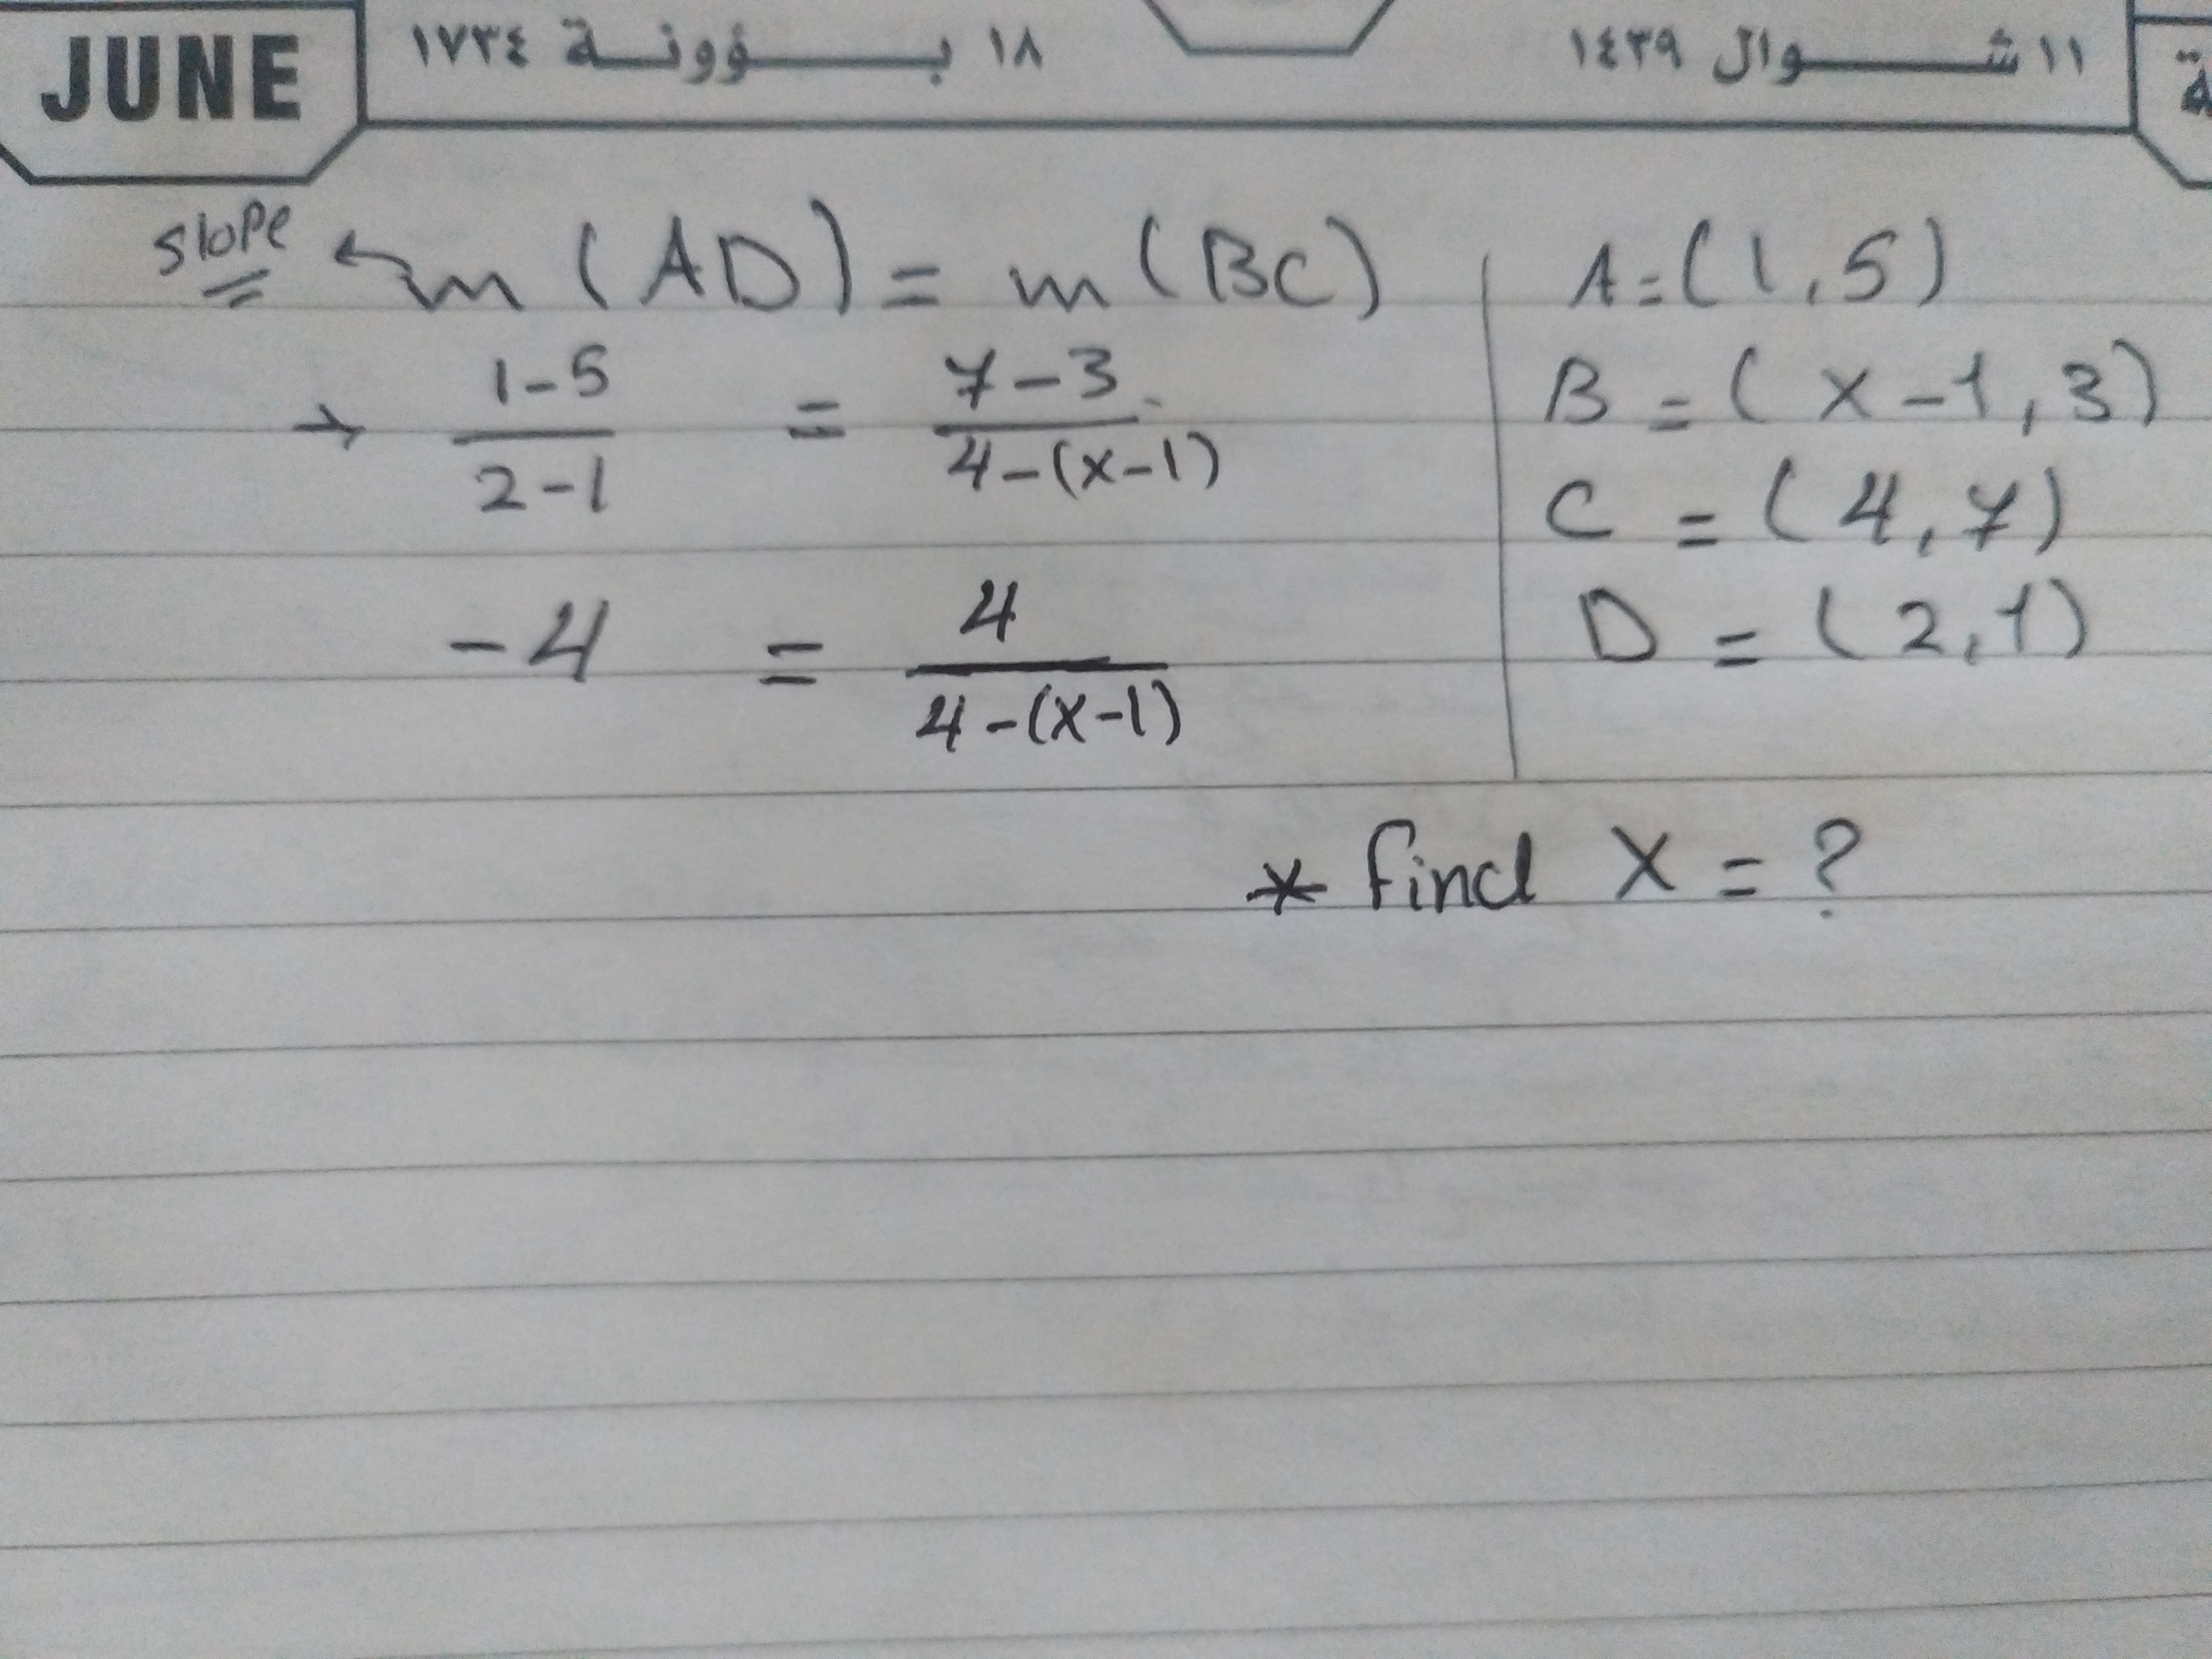 JUNE ١٨ بـــؤونـــة ١٧٣٤ ١١ شـــوال ١٤٣٩
slope ← m (AD) = m (BC)
→ 1-5 / 2-1 = 7-3 / 4-(x-1)
-4 = 4 / 4-(x-1)
A = (1,5)
B = (x-1,3)
C = (4,7)
D = (2,1)
* find x = ?